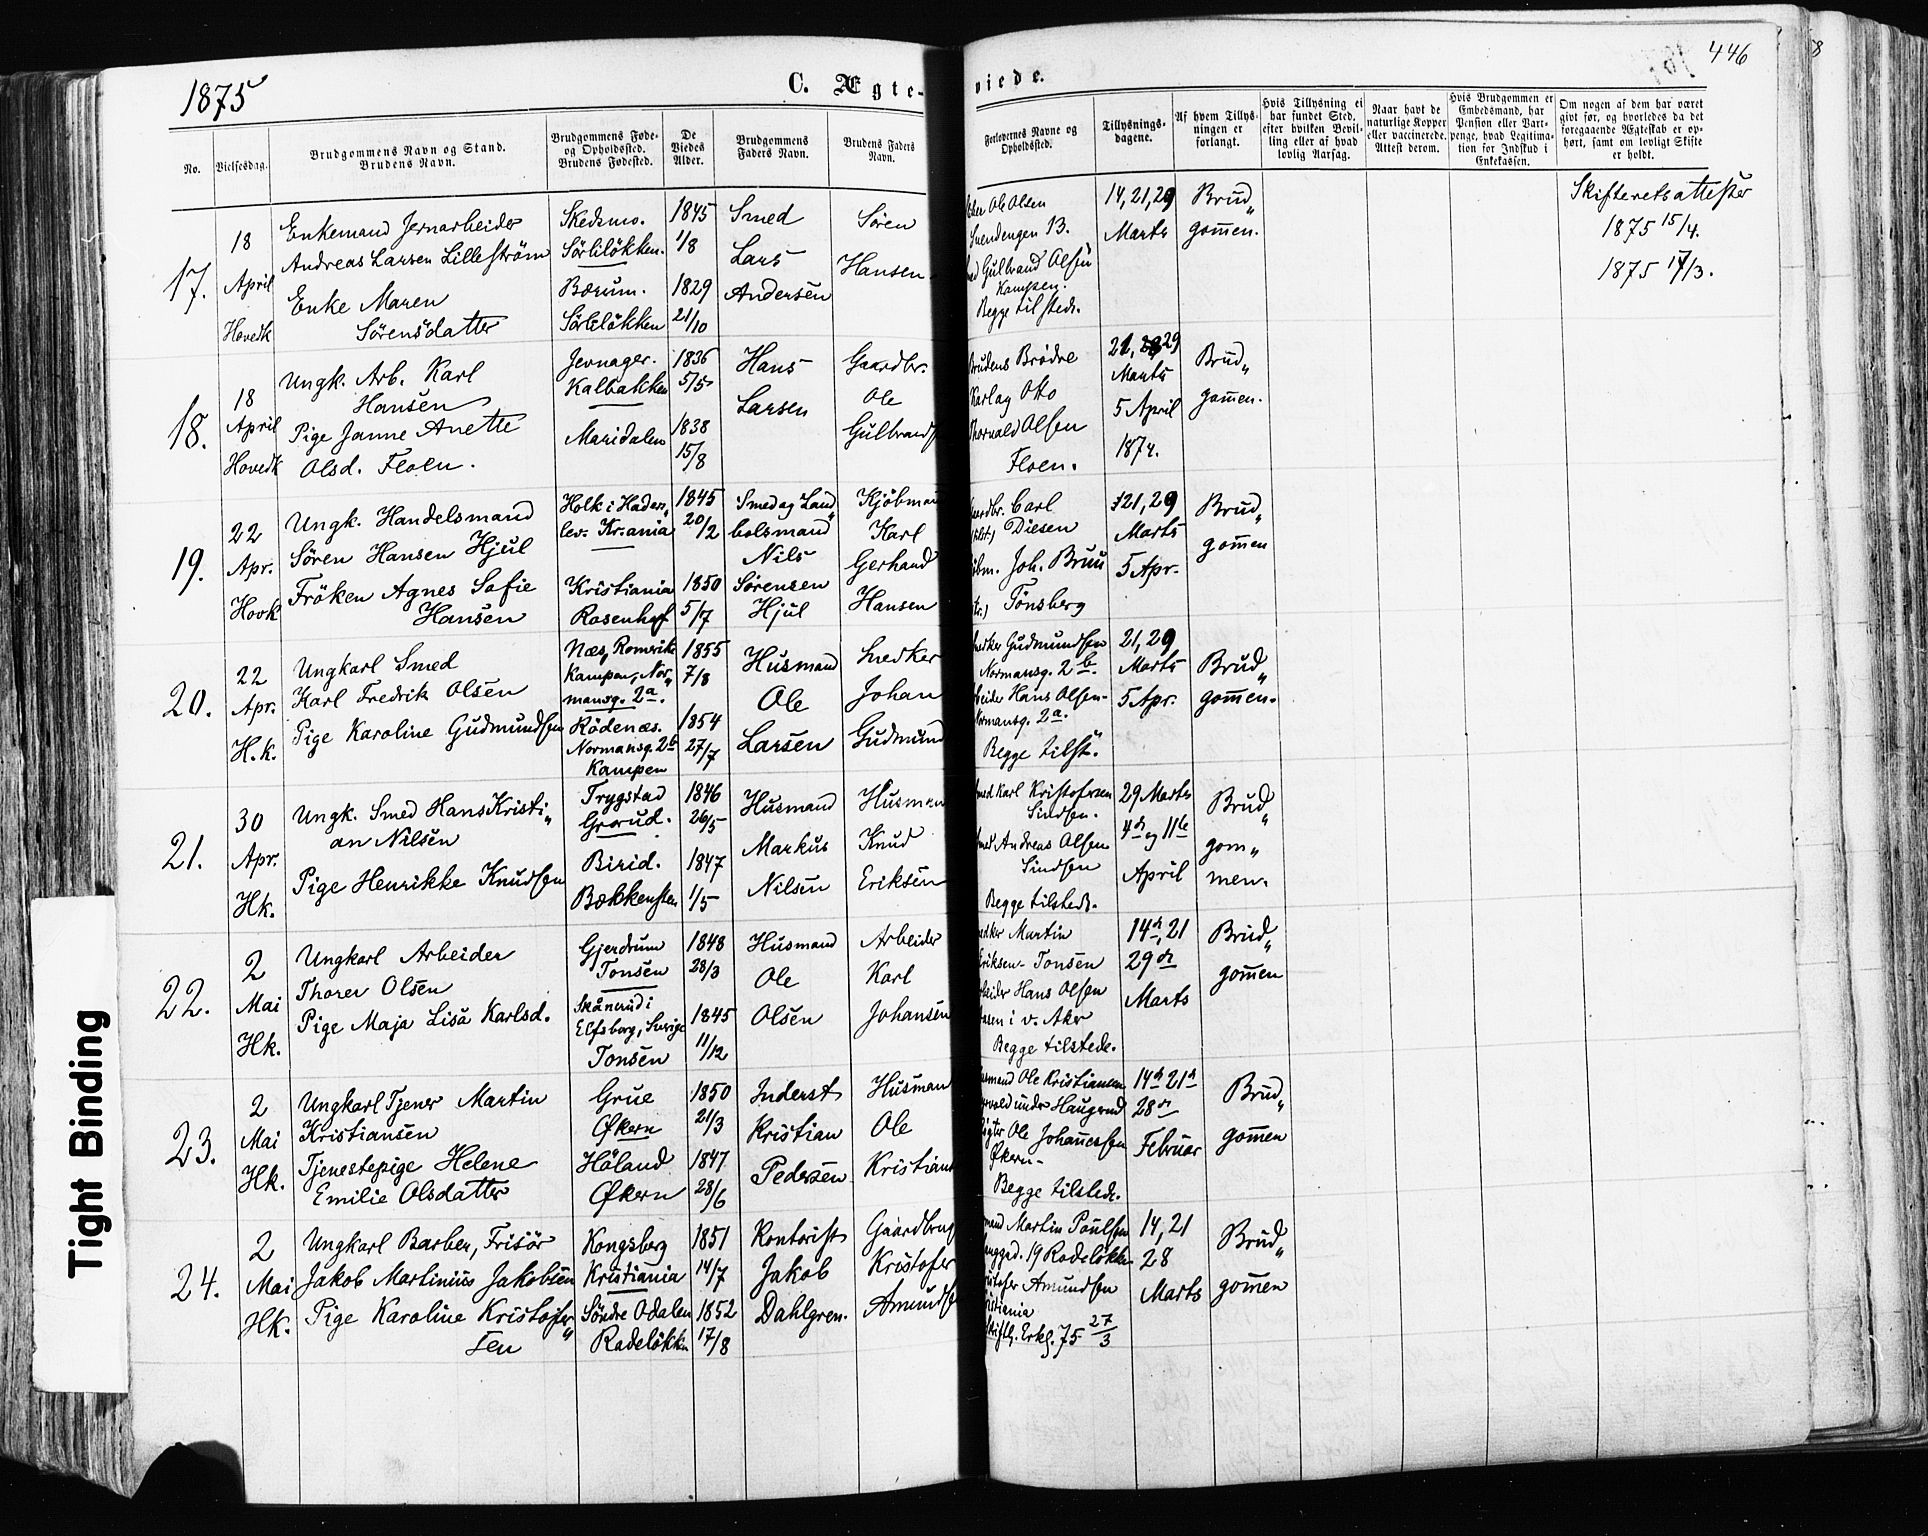 1875
C. Ægte-
viede.
446
No.
Vielsesdag.
Brudgommens Navn og Stand.
Brudens Navn.
Brudgommens Føde-
og Opholdssted.
Brudens Fødested.
De
Viedes
Alder.
Brudgommens
Faders Navn.
Brudens Faders
Navn.
Forlovernes Navne og
Opholdssted.
Tillysnings-
dagene.
Af hvem Tillys-
ningen er
forlangt.
Hvis Tillysning ei
har fundet Sted,
efter hvilken Bevil-
ling eller af hvad
lovlig Aarsag.
Naar havt de
naturlige Kopper
eller vaccinerede.
Attest derom.
Hvis Brudgommen er
Embedsmand, har
Pension eller Vart-
penge, hvad Legitima-
tion for Indskud i
Enkekassen.
Om nogen af dem har været
givt før, og hvorledes da det
foregaaende Ægteskab er op-
hørt, samt om lovligt Skifte
er holdt.
17.
18
April
Hovedk
Enkemand Jernarbeider
Andreas Larsen Lillestrøm
Enke Maren
Sörensdatter
Skedsmo.
Sörliløkken.
Bærum.
Sörliløkken
1845
1/8
1829
21/10
Smed
Lars
Andersen
Sören
Hansen
Ole Olsen
Svendengen 13.
Gulbrand Olsen
Kampen.
Begge tilstede.
14, 21, 29
Marts
Brud„
gom̅en.
Skifteretsattester
1875 15/4.
1875 17/3.
18.
18
April
Hovedk
Ungk. Arb. Karl
Hansen
Pige Janne Anette
Olsd. Floen.
Jevnager.
Kalbakken
Maridalen
1836
5/5
1838
15/8
Hans
Larsen
Gaardbr.
Ole
Gulbrands
Brudens Brödre
Karl og Otto
Thorvald Olsen
Floen.
21, 28 29
Marts
5 April
1874.
Brud„
gom̅en.
19.
22
Apr.
Hovk
Ungk. Handelsmand
Sören Hansen Hjul
Fröken Agnes Sofie
Hansen
Holk i Haders„
lev. Kr.ania
Kristiania
Rosenhof
1845
20/2
1850
5/7
Smed og Land„
bolsmand
Nils
Sörensen
Hjul
Kjöbman
Karl
Gerhard
Hansen
Carl
Diesen
Joh. Bruu
Tönsberg
21, 29
Marts
5 Apr.
Brud„
gom̅en
20.
22
Apr.
H.k.
Ungkarl Smed
Karl Fredrik Olsen
Pige Karoline Gudmundsen
Næs, Romerike
Kampen, Nor„
mansg. 2a.
Rödenæs.
Normansg. 2b
Kampen
1855
7/8
1854
27/7
Husmand
Ole
Larsen
Snedker
Johan
Gudmund
Gudmundsen
Normansg. 2b.
Hans Olsen
Normansg. 2a.
Begge tilst.
21, 29
Marts
5 Apr.
Brud„
gom̅en.
21.
30
Apr.
Hk.
Ungk. Smed Hans Kristi„
an Nilsen
Pige Henrikke Knudsen
Trygstad
Grorud.
Birid.
Bækkensten
1846
26/5
1847
1/5
Husmand
Markus
Nilsen
Husman
Knud
Eriksen
Smed Karl Kristofersen
Sinsen.
Smed Andreas Olsen
Sindsen
Begge tilstede.
29 Marts
4de og 11te
April
Brud„
gom„
men.
22.
2
Mai
Hk.
Ungkarl Arbeider
Thorer Olsen
Pige Maja Lisa Karlsd.
Gjerdrum
Tonsen
Skånerud i
Elfsborg, Sverige
Tonsen
1848
28/3
1845
11/12
Husmand
Ole
Olsen
Arbeider
Karl
Johansen
Martin
Eriksen Tonsen
Hans Olsen
i v. Aker
Begge tilstede.
14de, 21
29de
Marts
Brud„
gom̅en
23.
2
Mai
Hk.
Ungkarl Tjener Martin
Kristiansen
Tjenestepige Helene
Emilie Olsdatter
Grue
Økern
Höland
Økern
1850
21/3
1847
28/6
Inderst
Kristian
Pedersen
Husman
Ole
Kristians
Ole Kristiansen
under Haugerud
Ole Johannessen
Økern
Begge tilstede.
14de 21de
28de
Februar
Brud„
gom̅en
24.
2
Mai
Hk.
Ungkarl Barber, Frisör
Jakob Martinius Jakobsen
Pige Karoline Kristofer„
sen
Kongsberg
Kristiania
Söndre Odalen
Rodeløkken
1851
14/7
1852
17/8
Kontorist
Jakob
Dahlgren.
Gaardbrug
Kristofer
Amunds
Martin Paulsen
19 Rodeløkken
Kristofer Amundsen
Kristiania
Skriftlg. Erkl. 75 27/3
14, 21
28
Marts
Brud„
gom̅en
Tight Binding